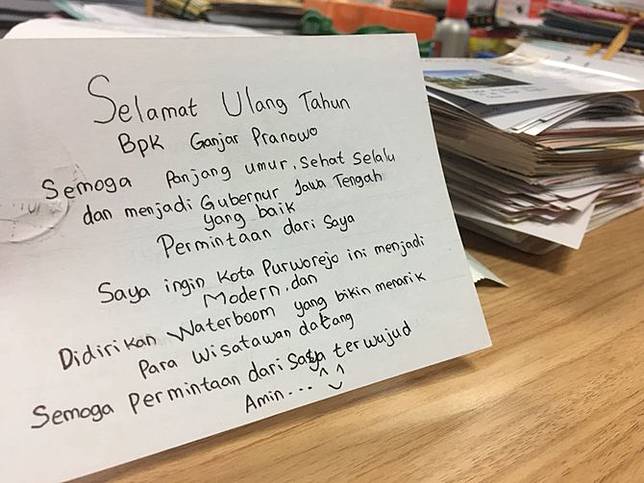 Selamat Ulang Tahun
Bpk Ganjar Pranowo
Semoga Panjang umur, Sehat Selalu
dan menjadi Gubernur Jawa Tengah
yang baik
Permintaan dari Saya
Saya ingin Kota Purworejo ini menjadi
Modern, dan
Didirikan Waterboom yang bikin menarik
Para Wisatawan datang
Semoga Permintaan dari Saya terwujud
Amin... ^^